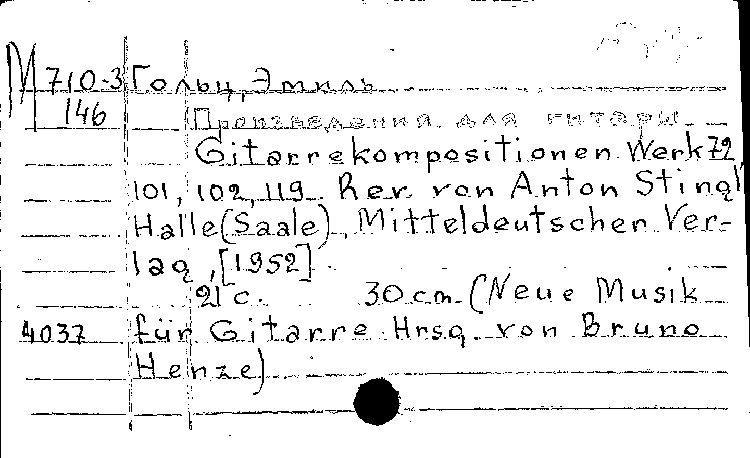 М 710-3 Гольц, Эмиль
146 Произведения для гитары.
Gitarrekompositionen Werk 72,
101, 102, 119. Rev. von Anton Stingl
Halle (Saale), Mitteldeutschen Ver-
lag, [1952].
21 с. 30 cm. (Neue Musik
4037 für Gitarre Hrsg. von Bruno
Henze)